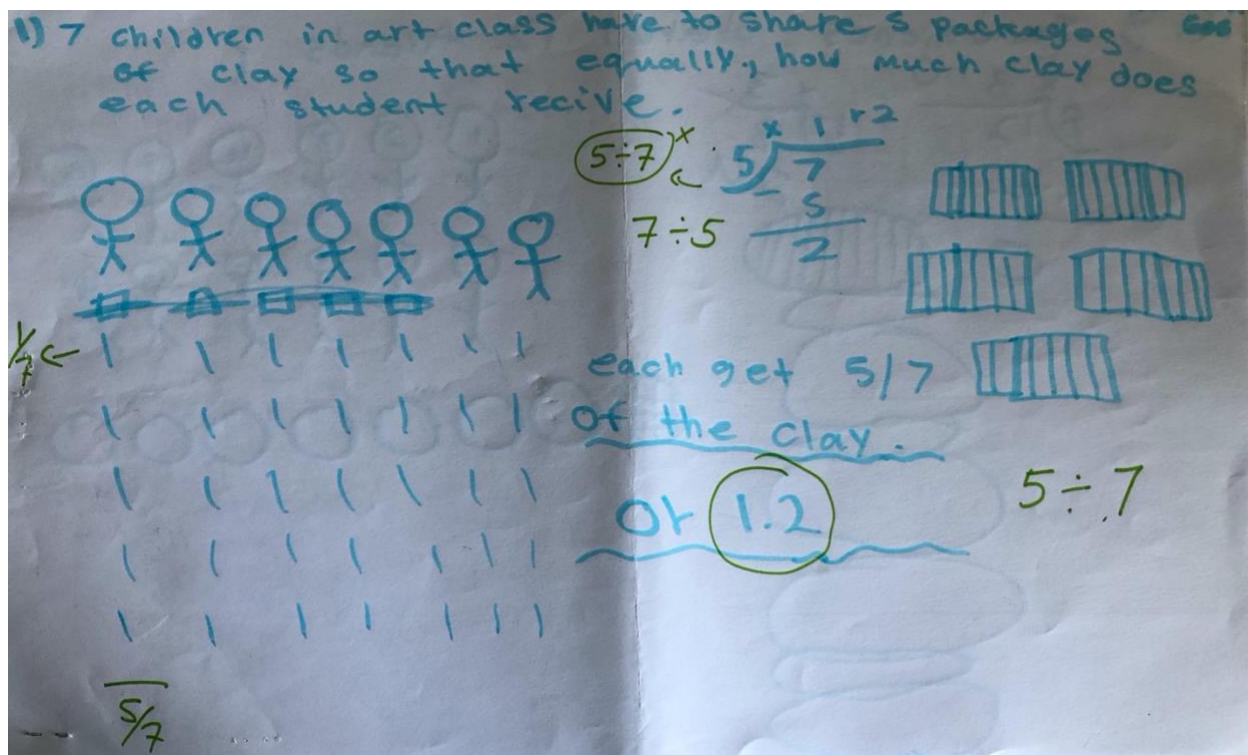 1) 7 children in art class have to share 5 packages
of clay so that equally, how much clay does
each student recive.
5÷7 x
←
7÷5
x 1 r2
5)7
- 5
2
1/7 ←
each get 5/7
of the clay.
or 1.2
5÷7
5/7